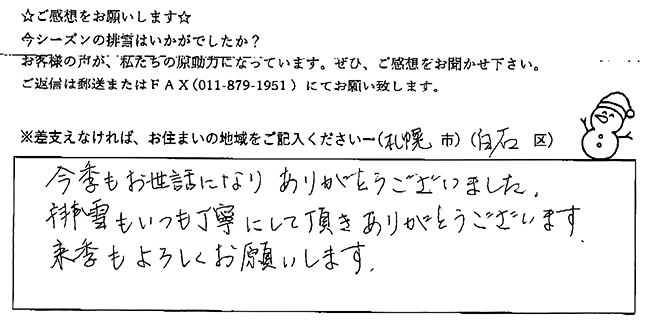 ☆ご感想をお願いします☆
今シーズンの排雪はいかがでしたか？
お客様の声が、私たちの原動力になっています。ぜひ、ご感想をお聞かせ下さい。
ご返信は郵送またはＦＡＸ(011-879-1951) にてお願い致します。
※差支えなければ、お住まいの地域をご記入ください→(札幌 市) (白石 区)
今季もお世話になり ありがとうございました。
排雪もいつも丁寧にして頂きありがとうございます。
来季もよろしくお願いします。